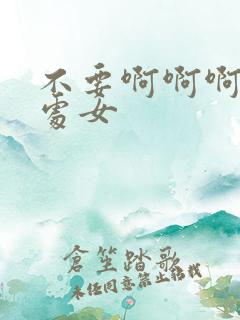 不要啊啊啊
處女
倉笙踏歌
未经同意禁止转载